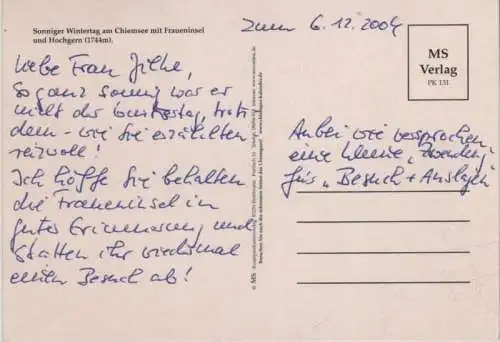 Sonniger Wintertag am Chiemsee mit Fraueninsel
und Hochgern (1744m).
zum 6.12.2004
MS
Verlag
PK 131
Liebe Frau
So ganz sonnig war er
nicht der trotz
dem - wie Sie erzählten
reizvoll!
Ich hoffe Sie behalten
die Fraueninsel in
guter Erinnerung und
statten ihr nochmal
einen Besuch ab!
Anbei wie versprochen
eine kleine
für „Besuch + Auslagen"
© MS